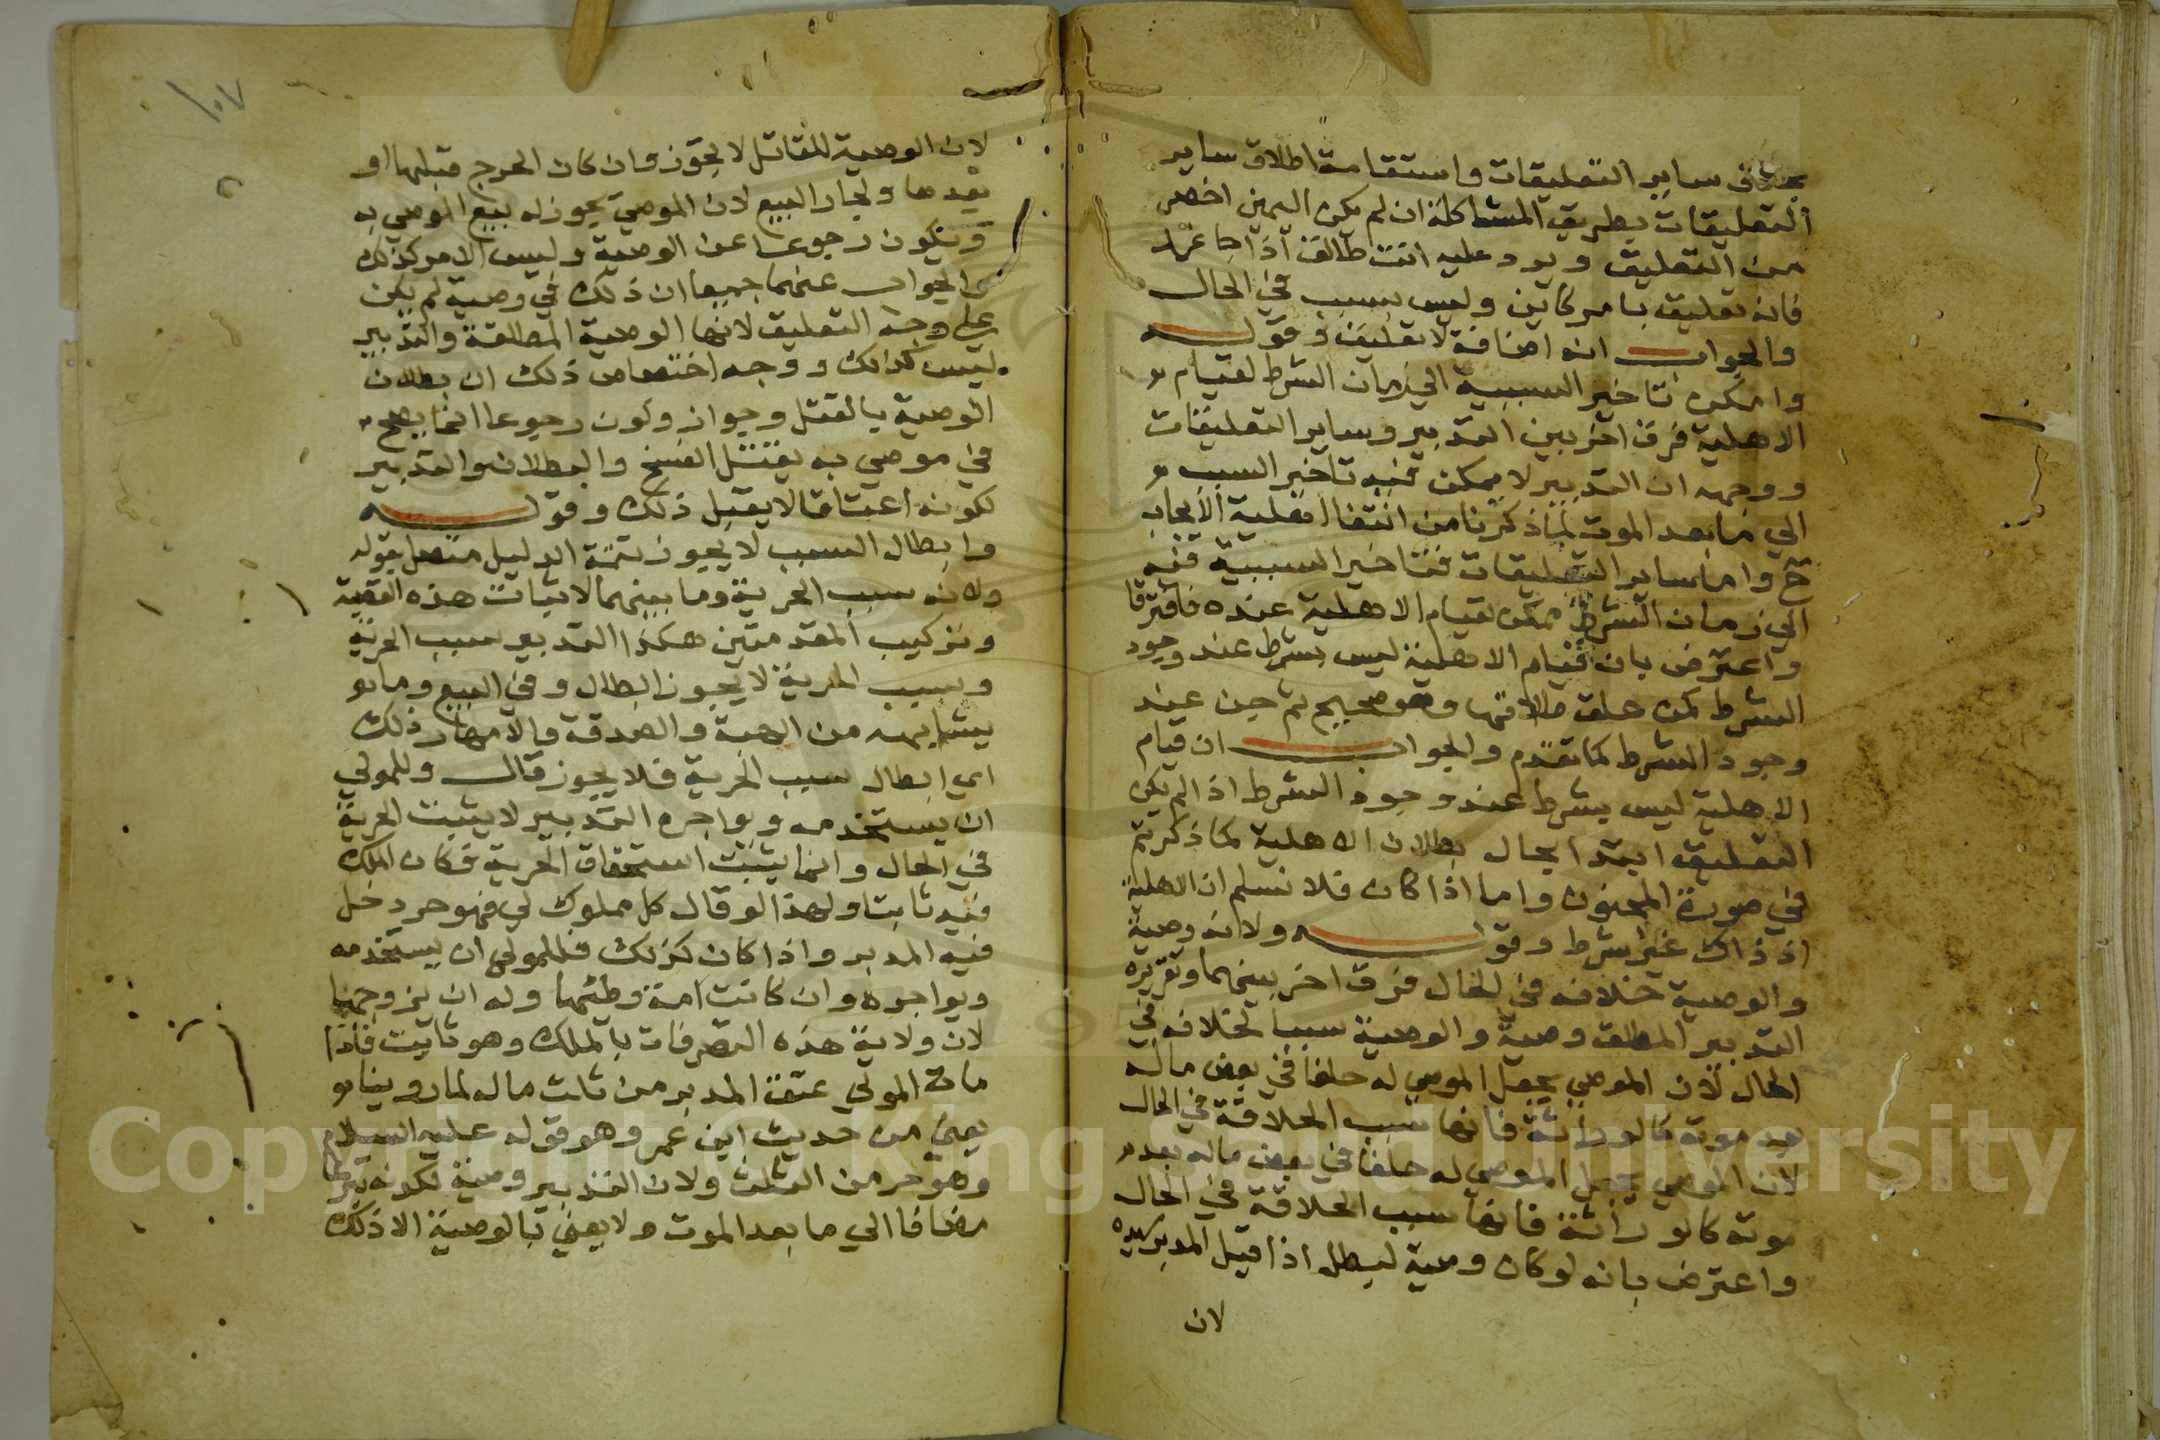 في ساير التعليقات واستقامة اطلاق ساير
التعليقات بطريق المشاكلة ان لم يكن اليمين اخص
من التعليق ويرد عليه انت طالق اذا جا غد
فانه تعليق بامر كاين وليس بسبب في الحال
والجواب انه اضافة لا تعليق وقوله
وامكن تاخير السببية الي زمان الشرط لقيام
الاهلية فرق اخر بين التدبير وساير التعليقات
ووجهه ان التدبير لا يمكن فيه تاخير السبب
الي ما بعد الموت لما ذكرنا من انتفا اهلية الايجاب
ح واما ساير التعليقات فتاخير السببية فيه
الي زمان الشرط ممكن لقيام الاهلية عنده فافترقا
واعترض بان قيام الاهلية ليس بشرط عند وجود
الشرط كمن حلف وهو صحيح ثم جن عند
وجود الشرط كما تقدم والجواب ان قيام
الاهلية ليس بشرط عند وجود الشرط اذا لم يكن
التعليق حال بطلان الاهلية كما ذكرتم
في صورة المجنون واما اذا كان فلا نسلم ان الاهلية
اذ ذاك غير شرط وقوله ولانه وصية
والوصية خلافه في الحال فرق اخر بينهما وتقريره
التدبير المطلق وصية والوصية سبب الخلافه في
الحال لان الموصي يجعل الموصي له خلفا في بعض ماله
بعد موته كالوراثة فانها سبب الخلافة في الحال
لان الموصي يجعل الموصي له خلفا في بعض ماله بعد
موته كالوراثة فانها سبب الخلافة في الحال
واعترض بانه لو كان وصية لبطل اذا قتل المدبر سيده
لان
١٠٧
لان الوصية للقاتل لا يجوز وان كان الجرح قبلها او
بعدها ولجاز البيع لان الموصي يجوز له بيع الموصي به
ويكون رجوعا عن الوصية وليس الامر كذلك
والجواب عنهما جميعا ان ذلك في وصية لم يكن
علي وجه التعليق لانها الوصية المطلقة والتدبير
ليس كذلك ووجه اختصاص ذلك ان بطلان
الوصية بالقتل وجواز وكون رجوعا انما يصح
في موصي به يقبل الفسخ والبطلان والتدبير
لكونه اعتاقا لا يقبل ذلك وقوله
وابطال السبب لا يجوز تتمة الدليل متصل بقوله
ولانه سبب الحرية وما بينهما لاثبات هذه القضية
وتركيب المقدمتين هكذا التدبير سبب الحرية
وسبب الحرية لا يجوز ابطال وفي البيع وما
يشابهه من الهبة والصدقة والامهار ذلك
اي ابطال سبب الحرية فلا يجوز قال وللمولي
ان يستخدمه ويواجره التدبير لا يثبت الحرية
في الحال وانما يثبت استحقاق الحرية فكان الملك
فيه ثابتا ولهذا لو قال كل مملوك لي فهو حر دخل
فيه المدبر واذا كان كذلك فللمولي ان يستخدمه
ويواجره وان كانت امة وطئها وله ان يزوجها
لان ولاية هذه التصرفات بالملك وهو ثابت فاذا
مات المولي عتق المدبر من ثلث ماله لما روينا
يعني من حديث ابن عمر وهو قوله عليه السلام
وهو حر من الثلث ولان التدبير وصية لكونه تبرعا
مضافا الي ما بعد الموت ولا يعني بالوصية الا ذلك
Copyright © King Saud University